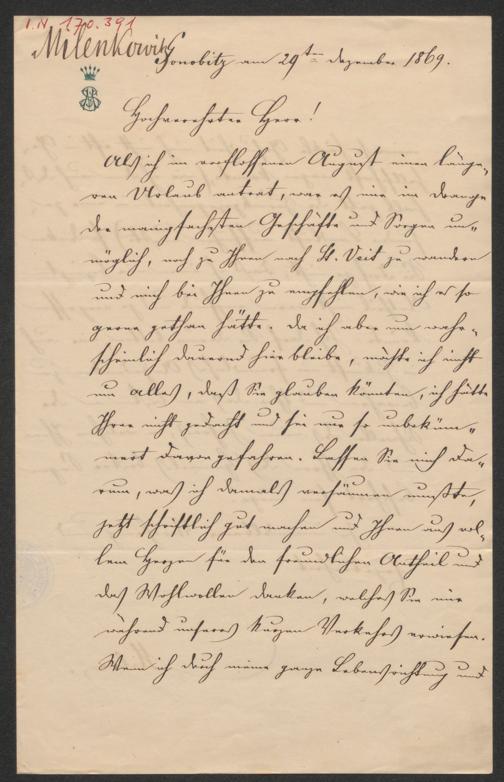 I.N. 170.391
Milenkowitz
Gonobitz am 29ten Dezember 1869.
Hochverehrter Herr!
Als ich im verflossenen August einen länge-
ren Urlaub antrat, war es mir im Drange
der mannigfachsten Geschäfte und Sorgen un-
möglich, noch zu Ihnen nach St. Veit zu wandern
und mich bei Ihnen zu empfehlen, wie ich es so
gerne gethan hätte. Da ich aber nun wahr-
scheinlich dauernd hier bleibe, möchte ich nicht
um alles, daß Sie glauben könnten, ich hätte
Ihrer nicht gedacht und sei nur so unbeküm-
mert davongefahren. Lassen Sie mich da-
rum, was ich damals versäumen mußte,
jetzt schriftlich gut machen und Ihnen aus vol-
lem Herzen für den freundlichen Antheil und
das Wohlwollen danken, welches Sie mir
während unseres kurzen Verkehrs erwiesen.
Wenn ich durch meine ganze Lebensrichtung und